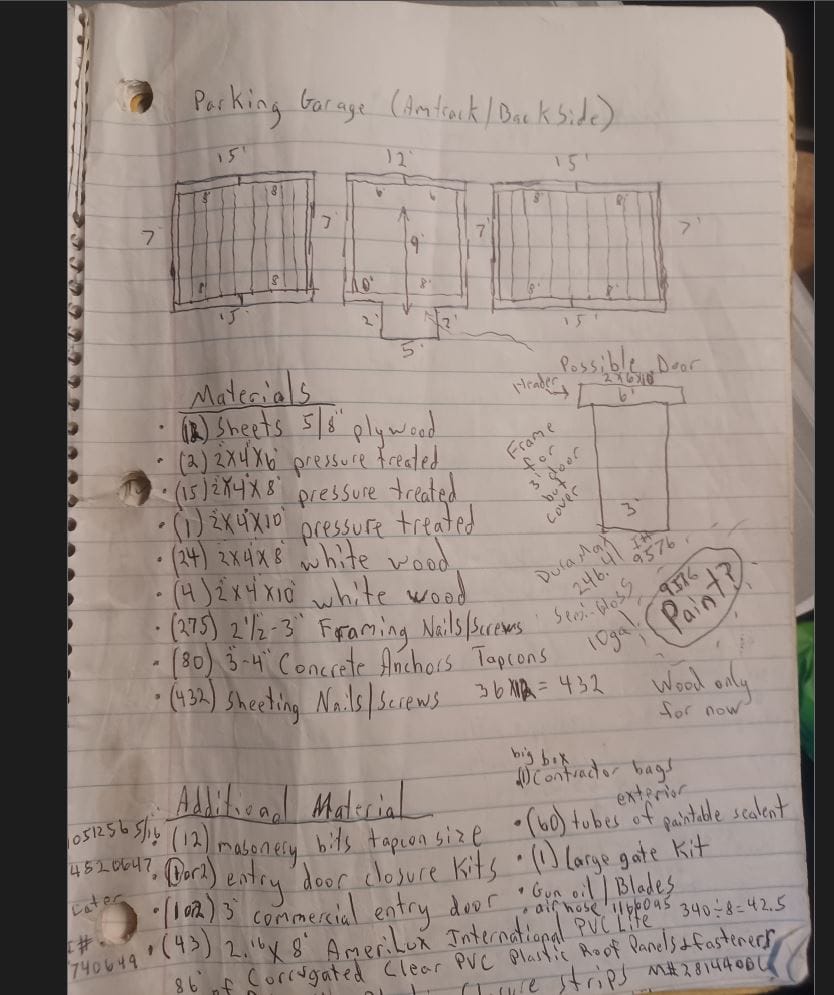 Parking Garage (Amtrack/Backside)
15' 12' 15'
8' 8' 6' 6' 8' 8'
7' 7' 9' 7' 7'
8' 8' 8' 8' 8'
15' 2' 2' 15'
5'
Possible Door
2x6x10'
Header → 6'
Frame
for
3' door
but
cover
3'
Materials
• (12) sheets 5/8" plywood
• (2) 2x4x6' pressure treated
• (15) 2x4x8' pressure treated
• (1) 2x4x10' pressure treated
• (24) 2x4x8' white wood
• (4) 2x4x10' white wood
• (275) 2 1/2-3" Framing Nails/Screws
• (80) 3-4" Concrete Anchors Tapcons
• (432) Sheeting Nails/Screws 36x12=432
DuraMax I#
246.41 9576
Semi-Gloss
10gal.
9576
Paint?
Wood only
for now
Additional Material
1051256 5/16 • (12) masonery bits tapcon size
4520647 • (1 or 2) entry door closure Kits
Later • (1 or 2) 3' commercial entry door
I#
740649 • (43) 2.16 x 8' AmeriLux International PVC Lite
86' of Corrugated Clear PVC Plastic Roof Panels & fasteners
closure strips M#
big box
(1) Contractor bags
exterior
• (60) tubes of paintable sealent
• (1) Large gate Kit
• Gun oil / Blades
• air hose
340÷8=42.5